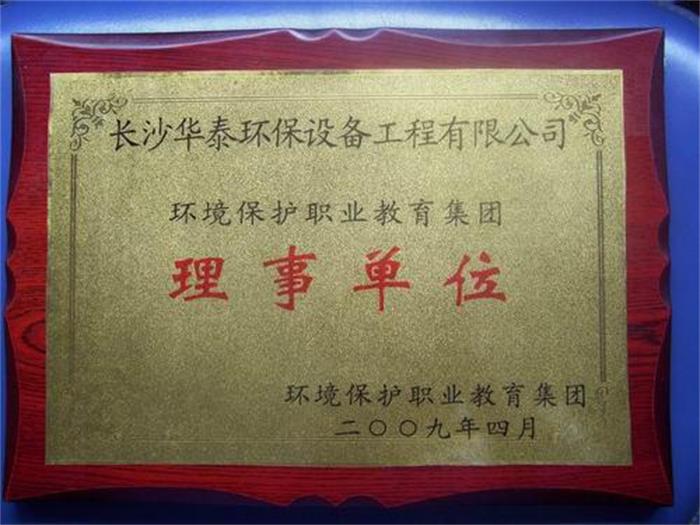 长沙华泰环保设备工程有限公司
环境保护职业教育集团
理事单位
环境保护职业教育集团
二〇〇九年四月